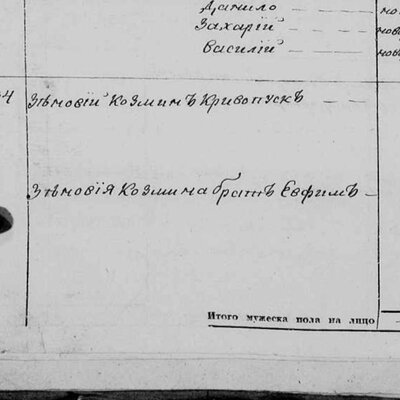 Данило
Захарій
Василій
4 Зѣновій Козминъ Кривопускъ
Зѣновія Козмина братъ Евфимъ
Итого мужеска пола на лицо